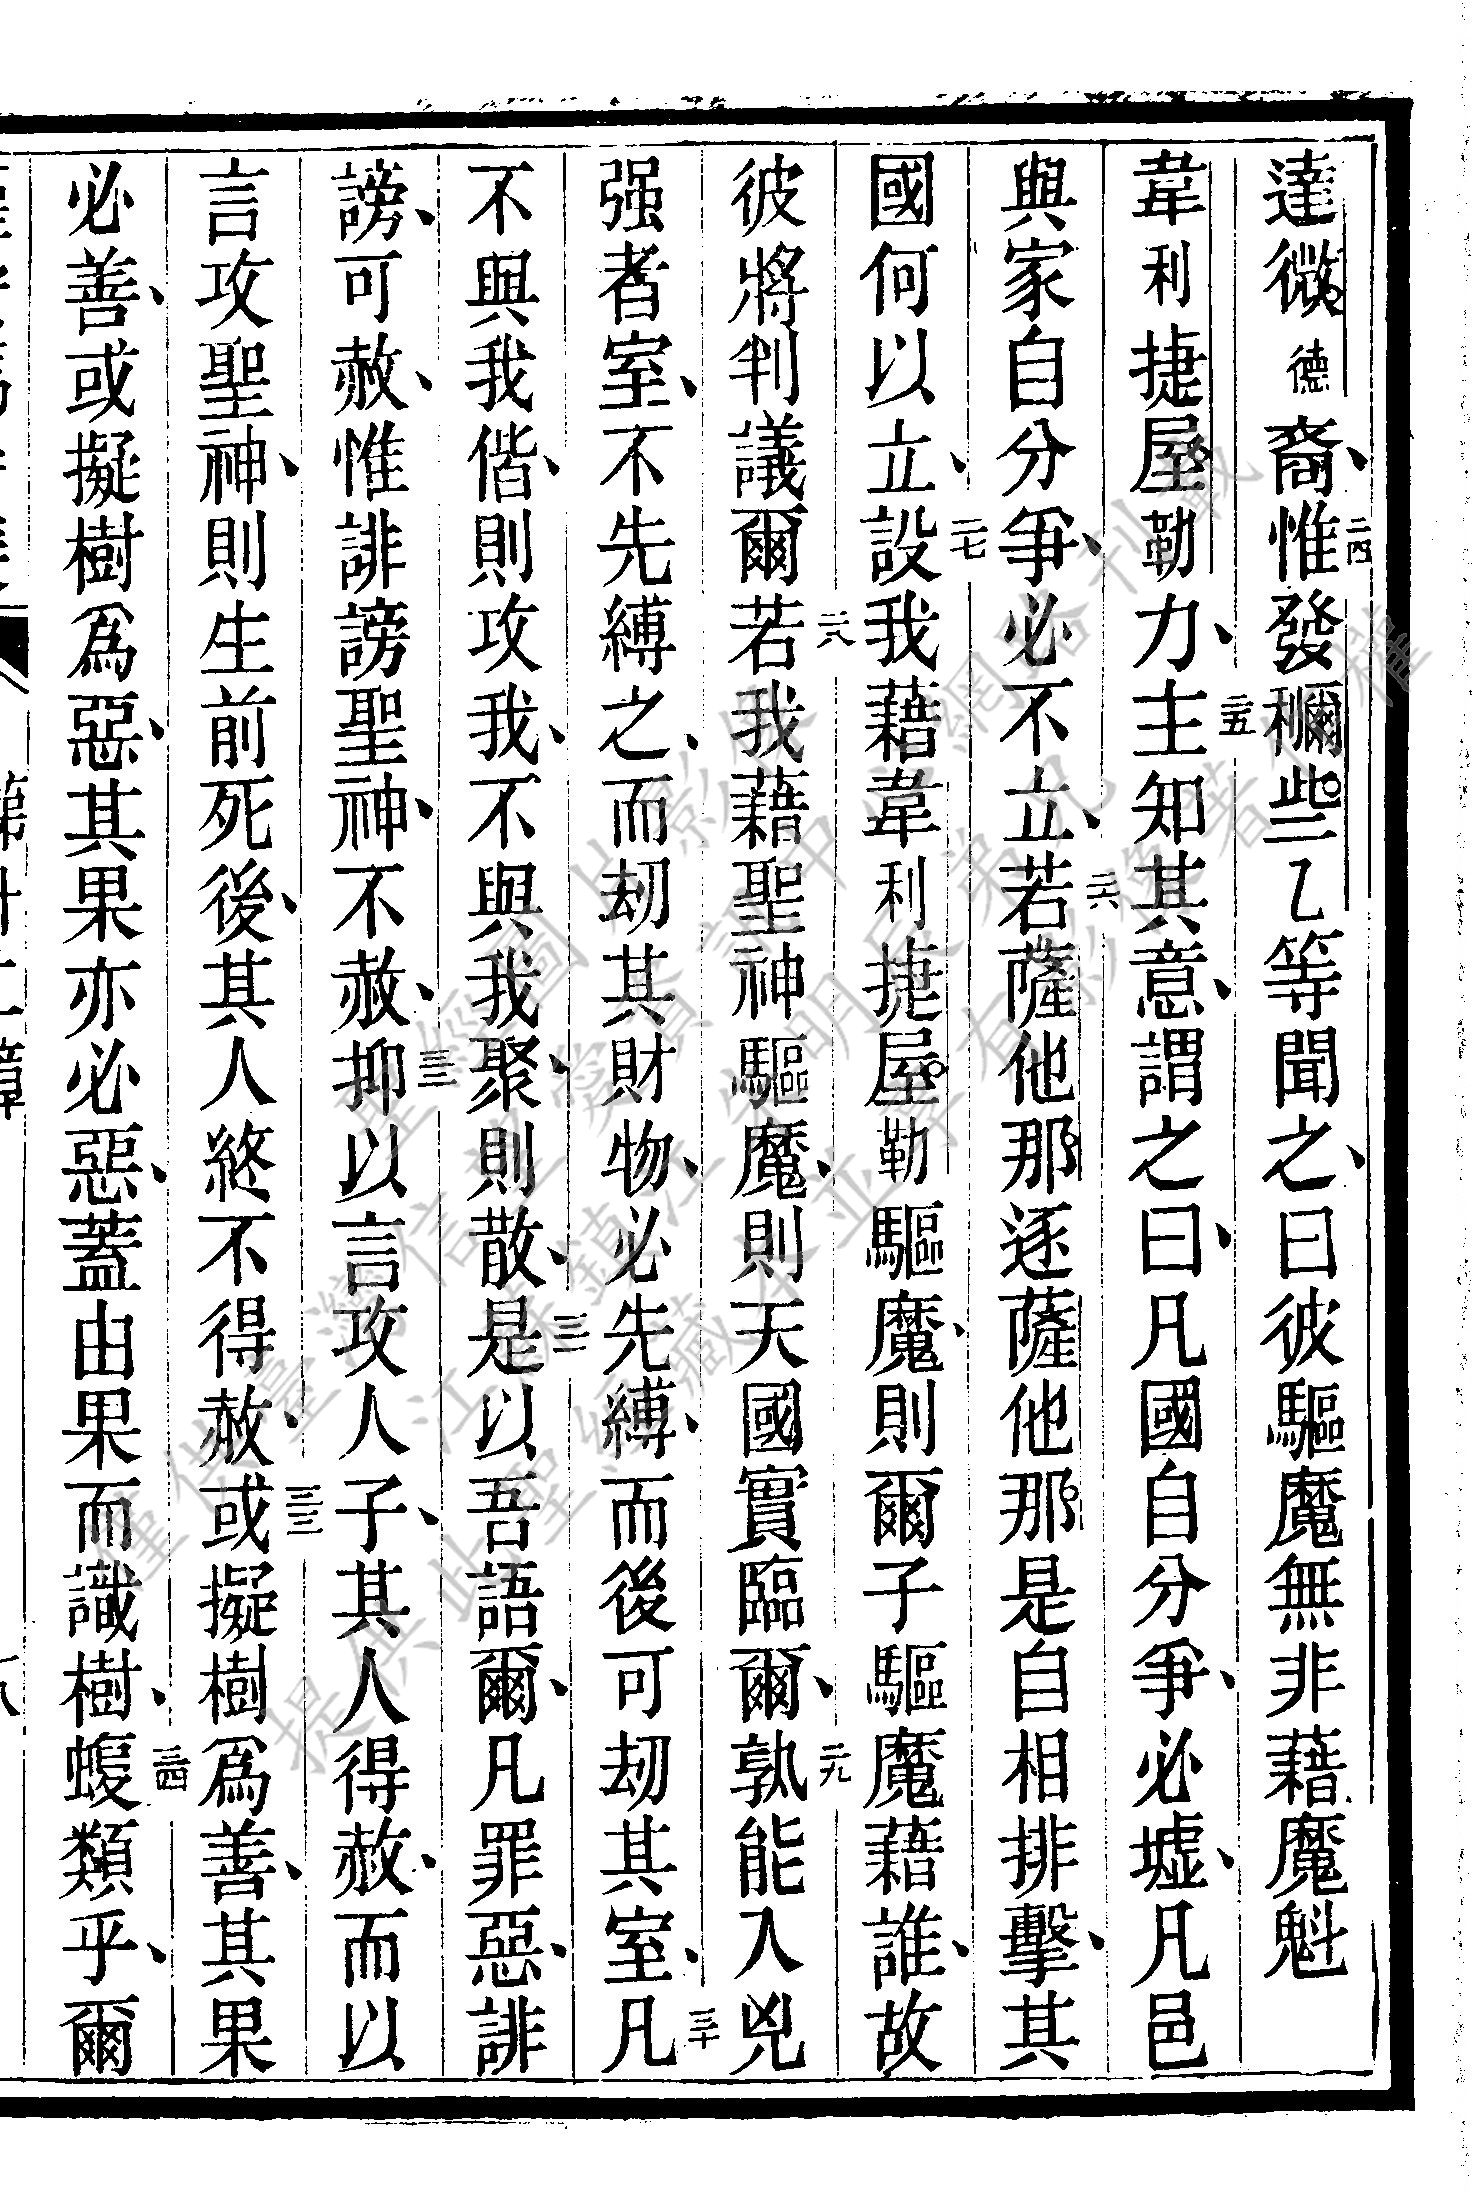 達微德裔、二四惟發穪些乙等聞之、曰彼驅魔無非藉魔魁
韋利捷屋勒力、二五主知其意、謂之曰、凡國自分爭、必墟、凡邑
與家自分爭、必不立、二六若薩他那逐薩他那是自相排擊、其
國何以立、二七設我藉韋利捷屋勒驅魔、則爾子驅魔藉誰、故
彼將判議爾二八若我藉聖神驅魔、則天國實臨爾、二九孰能入兇
强者室、不先縛之、而刧其財物、必先縛、而後可刧其室、三十凡
不與我偕、則攻我、不與我聚、則散、三一是以吾語爾、凡罪惡、誹
謗、可赦、惟誹謗聖神、不赦、三二抑以言攻人子、其人得赦、而以
言攻聖神、則生前死後、其人終不得赦、三三或擬樹爲善、其果
必善、或擬樹爲惡、其果亦必惡、蓋由果而識樹、三四蝮類乎、爾